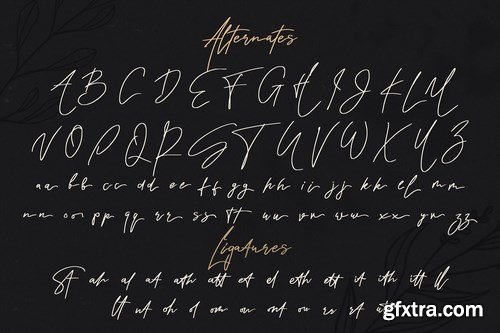 Alternates
A B C D E F G H I J K L M
N O P Q R S T U V W X Y Z
aa bb cc dd ee ff gg hh ii jj kk ll mm
nn oo pp qq rr ss tt uu vv ww xx yy zz
Ligatures
St ah al at ath att et el eth ett it ith itt ll
gfxtra.com